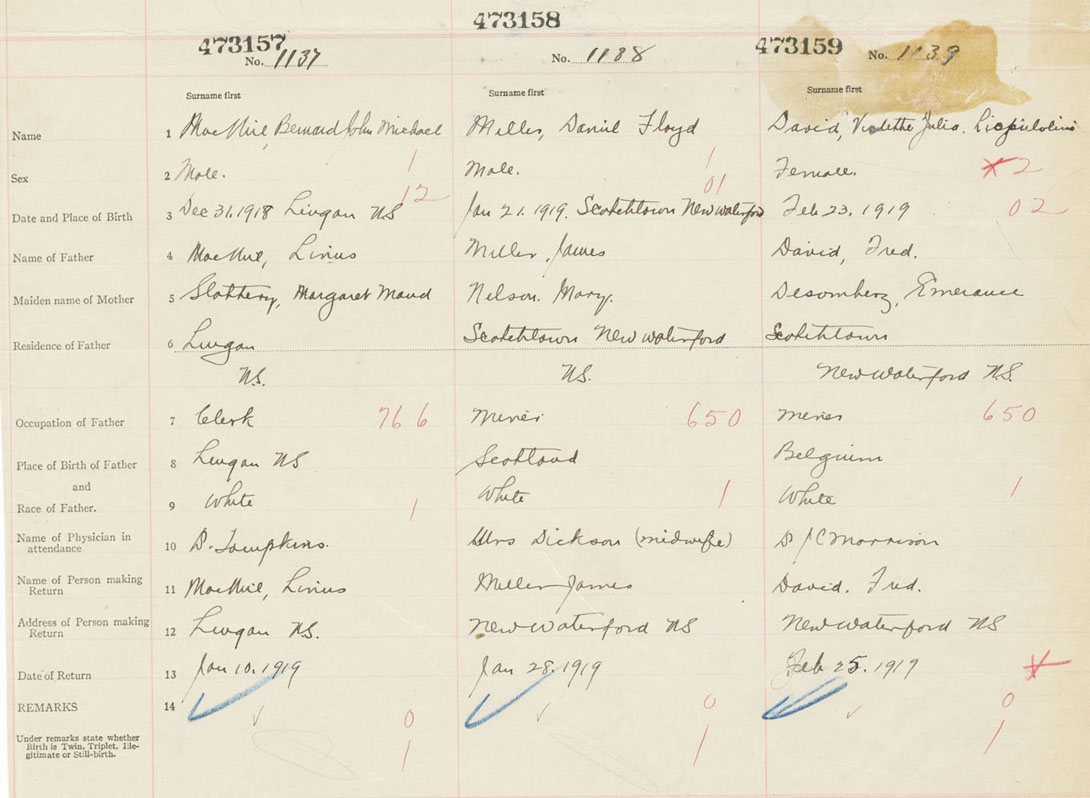 473157 473158 473159
No. 1137 No. 1138 No. 1139
Surname first Surname first Surname first
Name 1 MacNeil, Bernard John Michael Miller, Daniel Floyd David, Violette Julia.
Sex 2 Male. 1 Male. 1 Female. 2
12 01
Date and Place of Birth 3 Dec 31, 1918 Lingan NS Jan 21. 1919. Scotchtown New Waterford Feb 23. 1919 02
Name of Father 4 MacNeil, Linus Miller, James David, Fred.
Maiden name of Mother 5 Slattery, Margaret Maud Nelson. Mary. Emerance
Residence of Father 6 Lingan Scotchtown New Waterford Scotchtown
N.S. N.S. New Waterford N.S.
Occupation of Father 7 Clerk 766 Miner 650 Miner 650
Place of Birth of Father 8 Lingan NS Scotland Belgium
and
Race of Father. 9 White 1 White 1 White 1
Name of Physician in attendance 10 D. Tompkins. Mrs Dickson (midwife) D J C Morrison
Name of Person making Return 11 MacNeil, Linus Miller James David. Fred.
Address of Person making Return 12 Lingan N.S. New Waterford NS New Waterford NS
Date of Return 13 Jan 10. 1919 Jan 28. 1919 Feb 25. 1919
REMARKS 14
0 0 0
Under remarks state whether
Birth is Twin, Triplet, Ille-
gitimate or Still-birth.
1 1 1